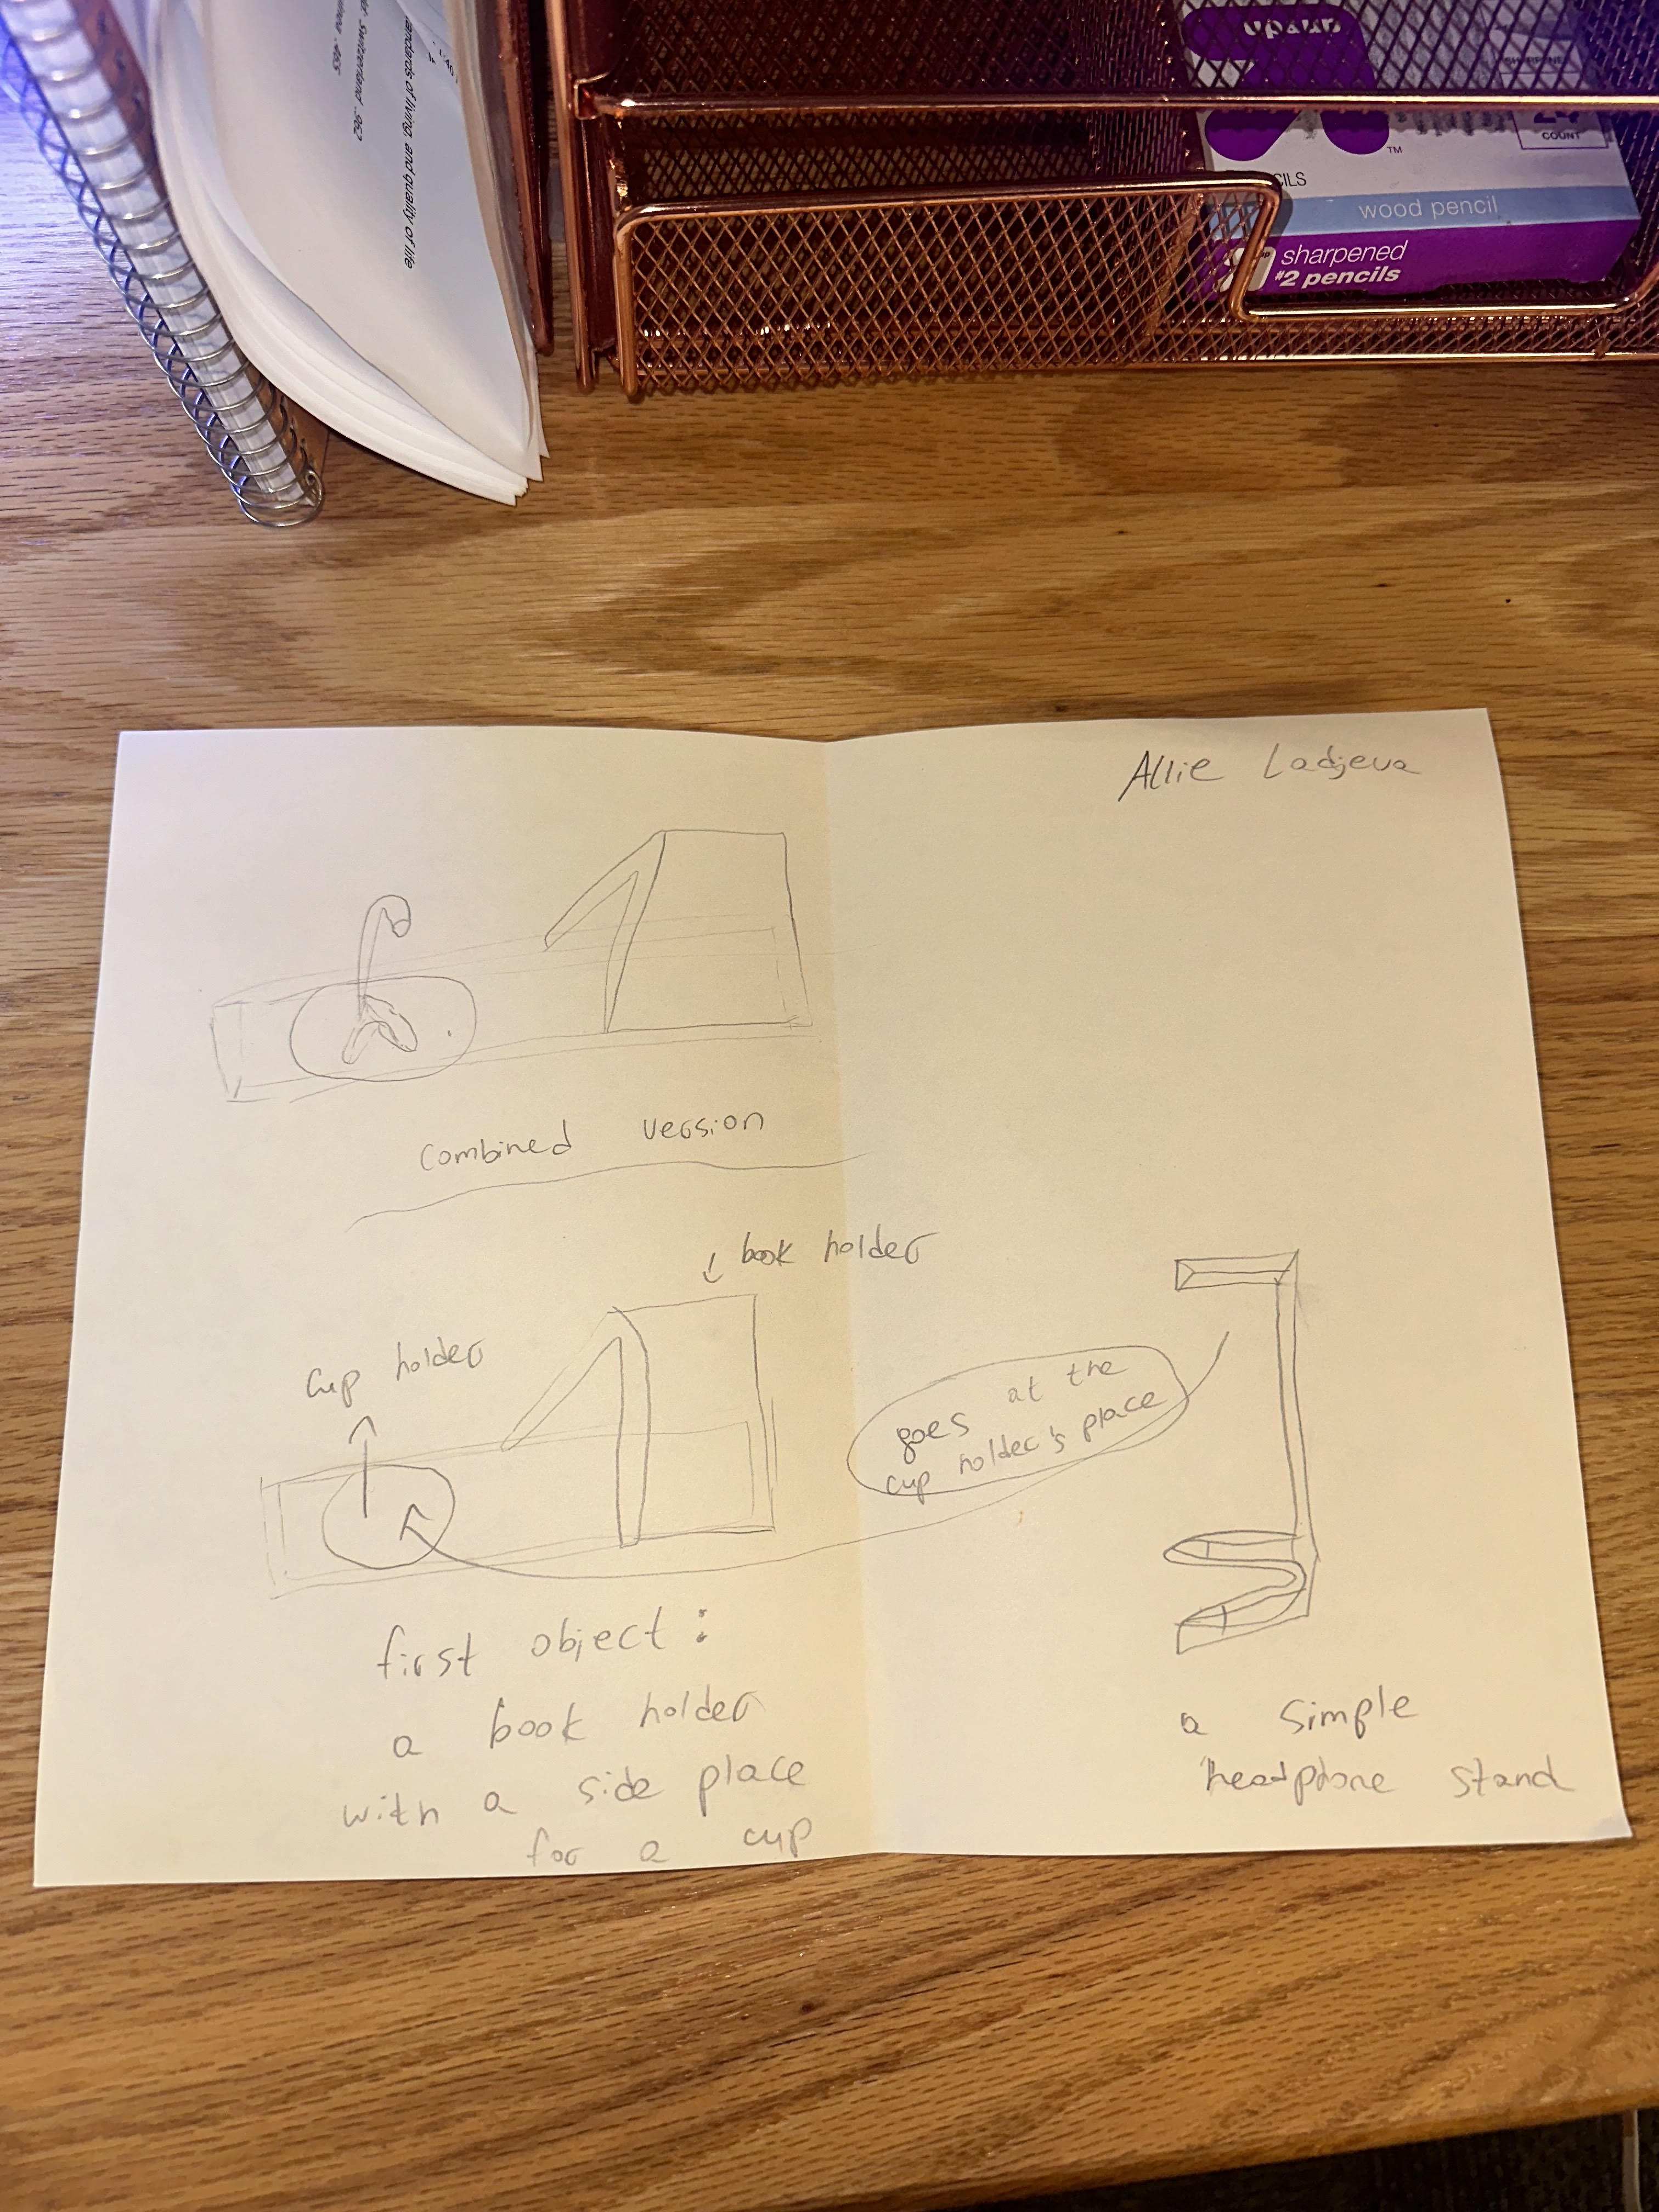 andards of living and quality of life
Switzerland .962
.955
TM
24
COUNT
CILS
wood pencil
sharpened
#2 pencils
Allie Ladjeva
combined version
book holder
cup holder
goes at the
cup holder's place
first object:
a book holder
with a side place
for a cup
a simple
headphone stand